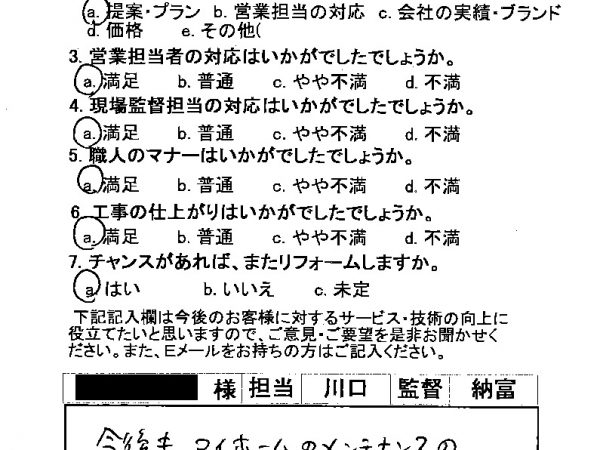 a. 提案・プラン b. 営業担当の対応 c. 会社の実績・ブランド
d. 価格 e. その他(
3. 営業担当者の対応はいかがでしたでしょうか。
a. 満足 b. 普通 c. やや不満 d. 不満
4. 現場監督担当の対応はいかがでしたでしょうか。
a. 満足 b. 普通 c. やや不満 d. 不満
5. 職人のマナーはいかがでしたでしょうか。
a. 満足 b. 普通 c. やや不満 d. 不満
6. 工事の仕上がりはいかがでしたでしょうか。
a. 満足 b. 普通 c. やや不満 d. 不満
7. チャンスがあれば、またリフォームしますか。
a はい b. いいえ c. 未定
下記記入欄は今後のお客様に対するサービス・技術の向上に
役立てたいと思いますので、ご意見・ご要望を是非お聞かせく
ださい。また、Eメールをお持ちの方はご記入ください。
様 担当 川口 監督 納富
今後も マイホームのメンテナンスの